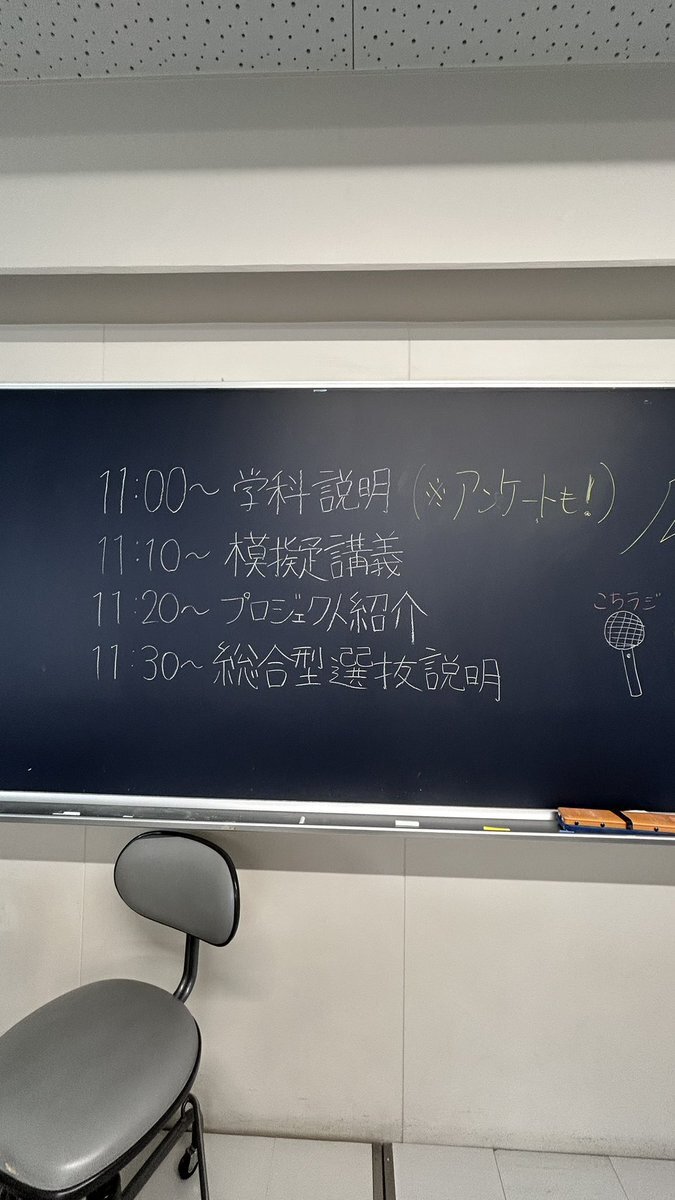 11:00～ 学科説明 (※アンケートも!)
11:10～ 模擬講義
11:20～ プロジェクト紹介
11:30～ 総合型選抜説明
こちラジ